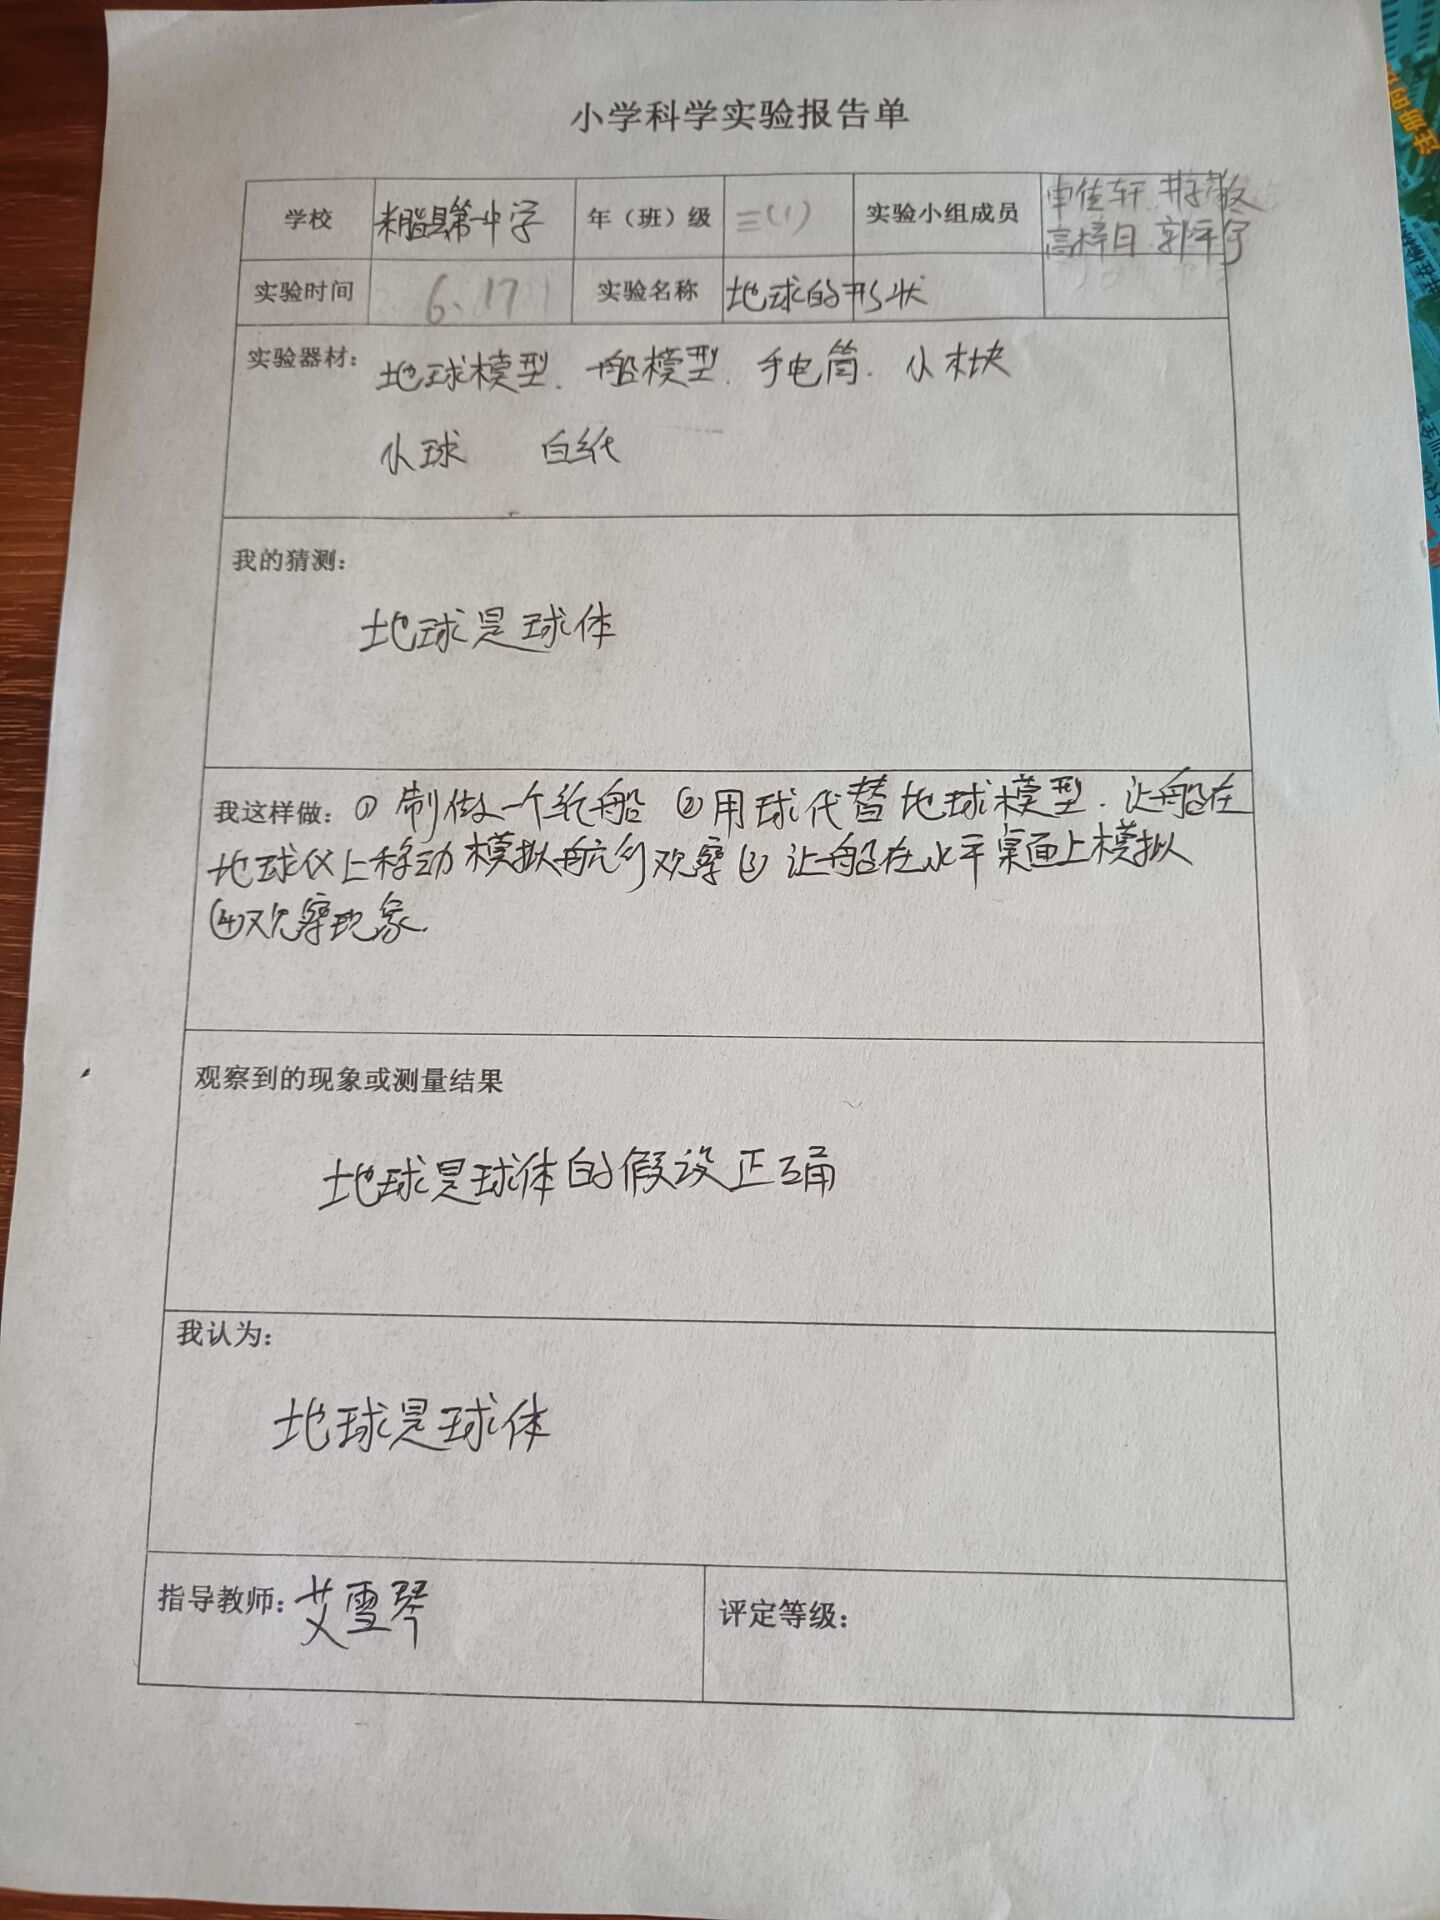 小学科学实验报告单
学校 米脂县第一中学 年（班）级 三(1) 实验小组成员 申佳轩
高梓日 郭子宁
实验时间 6.17 实验名称 地球的形状
实验器材：地球模型、船模型、手电筒、小木块
小球 白纸
我的猜测：
地球是球体
我这样做：① 制做一个纸船 ②用球代替地球模型.让船在
地球仪上移动模拟航行观察③让船在水平桌面上模拟
④观察现象.
观察到的现象或测量结果
地球是球体的假设正确
我认为：
地球是球体
指导教师：艾雪琴 评定等级：